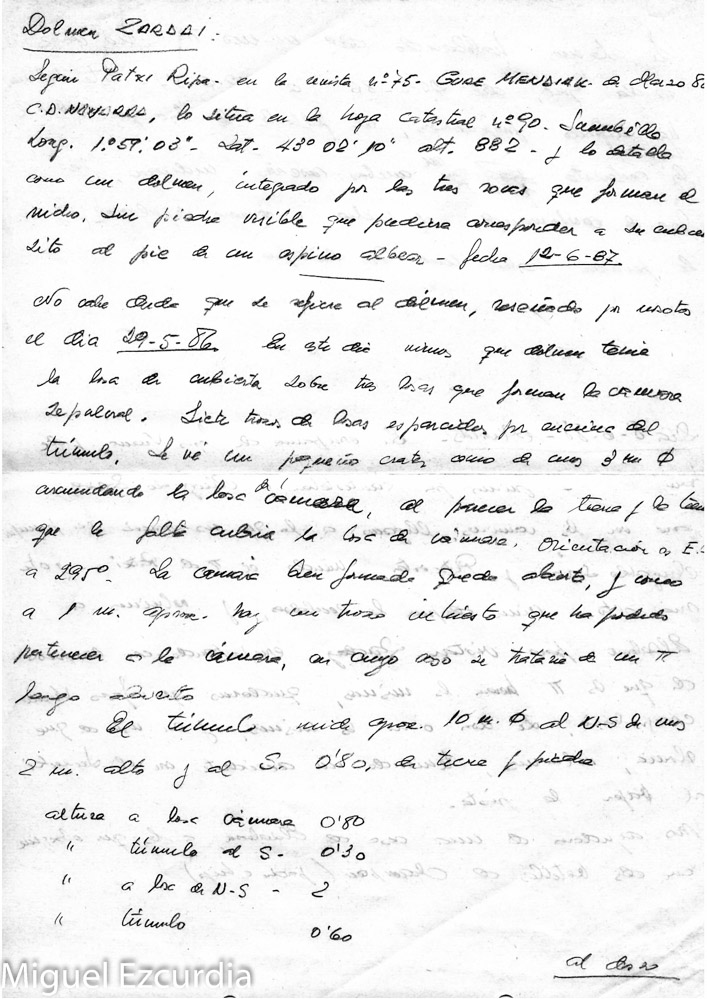 Dolmen ZARDAI.
Según Patxi Ripa - en la revista nº 75 - GURE MENDIAK de Marzo 8
C.D. NAVARRA, lo situa en la hoja catastral nº 90 - Sumbilla
Long. 1º 59' 03" - Lat - 43º 02' 10" alt. 882 - y lo detalla
como un dolmen, integrado por las tres rocas que forman el
nicho. Sin piedra visible que pudiera corresponder a su
sito al pie de un espino albar - fecha 12-6-87
No cabe duda que se refiere al dólmen, reseñado por
el dia 29-5-86. En este dia vimos que dolmen tenia
la losa de cubierta sobre tres losas que forman la cámara
sepulcral. Siete trozos de losas esparcidos por encima del
túmulo. Se vé un pequeño crater como de unos 3 m φ
circundando la losa de cámara, al parecer la tierra y la
que le falta cubria la losa de cámara. Orientación a E.
a 295º. La cámara bien formada queda abierta, y como
a 1 m. aprox. hay un trozo que ha podido
pertenecer a la cámara, en cuyo caso se trataria de un π
largo abierto
El túmulo mide aprox. 10 m. φ al N-S de unos
2 m. alto y al S. 0'80, de tierra y piedra
altura a losa cámara 0'80
" túmulo al S - 0'30
" a losa de N-S - 2
" túmulo 0'60
al dorso
Miguel Ezcurdia